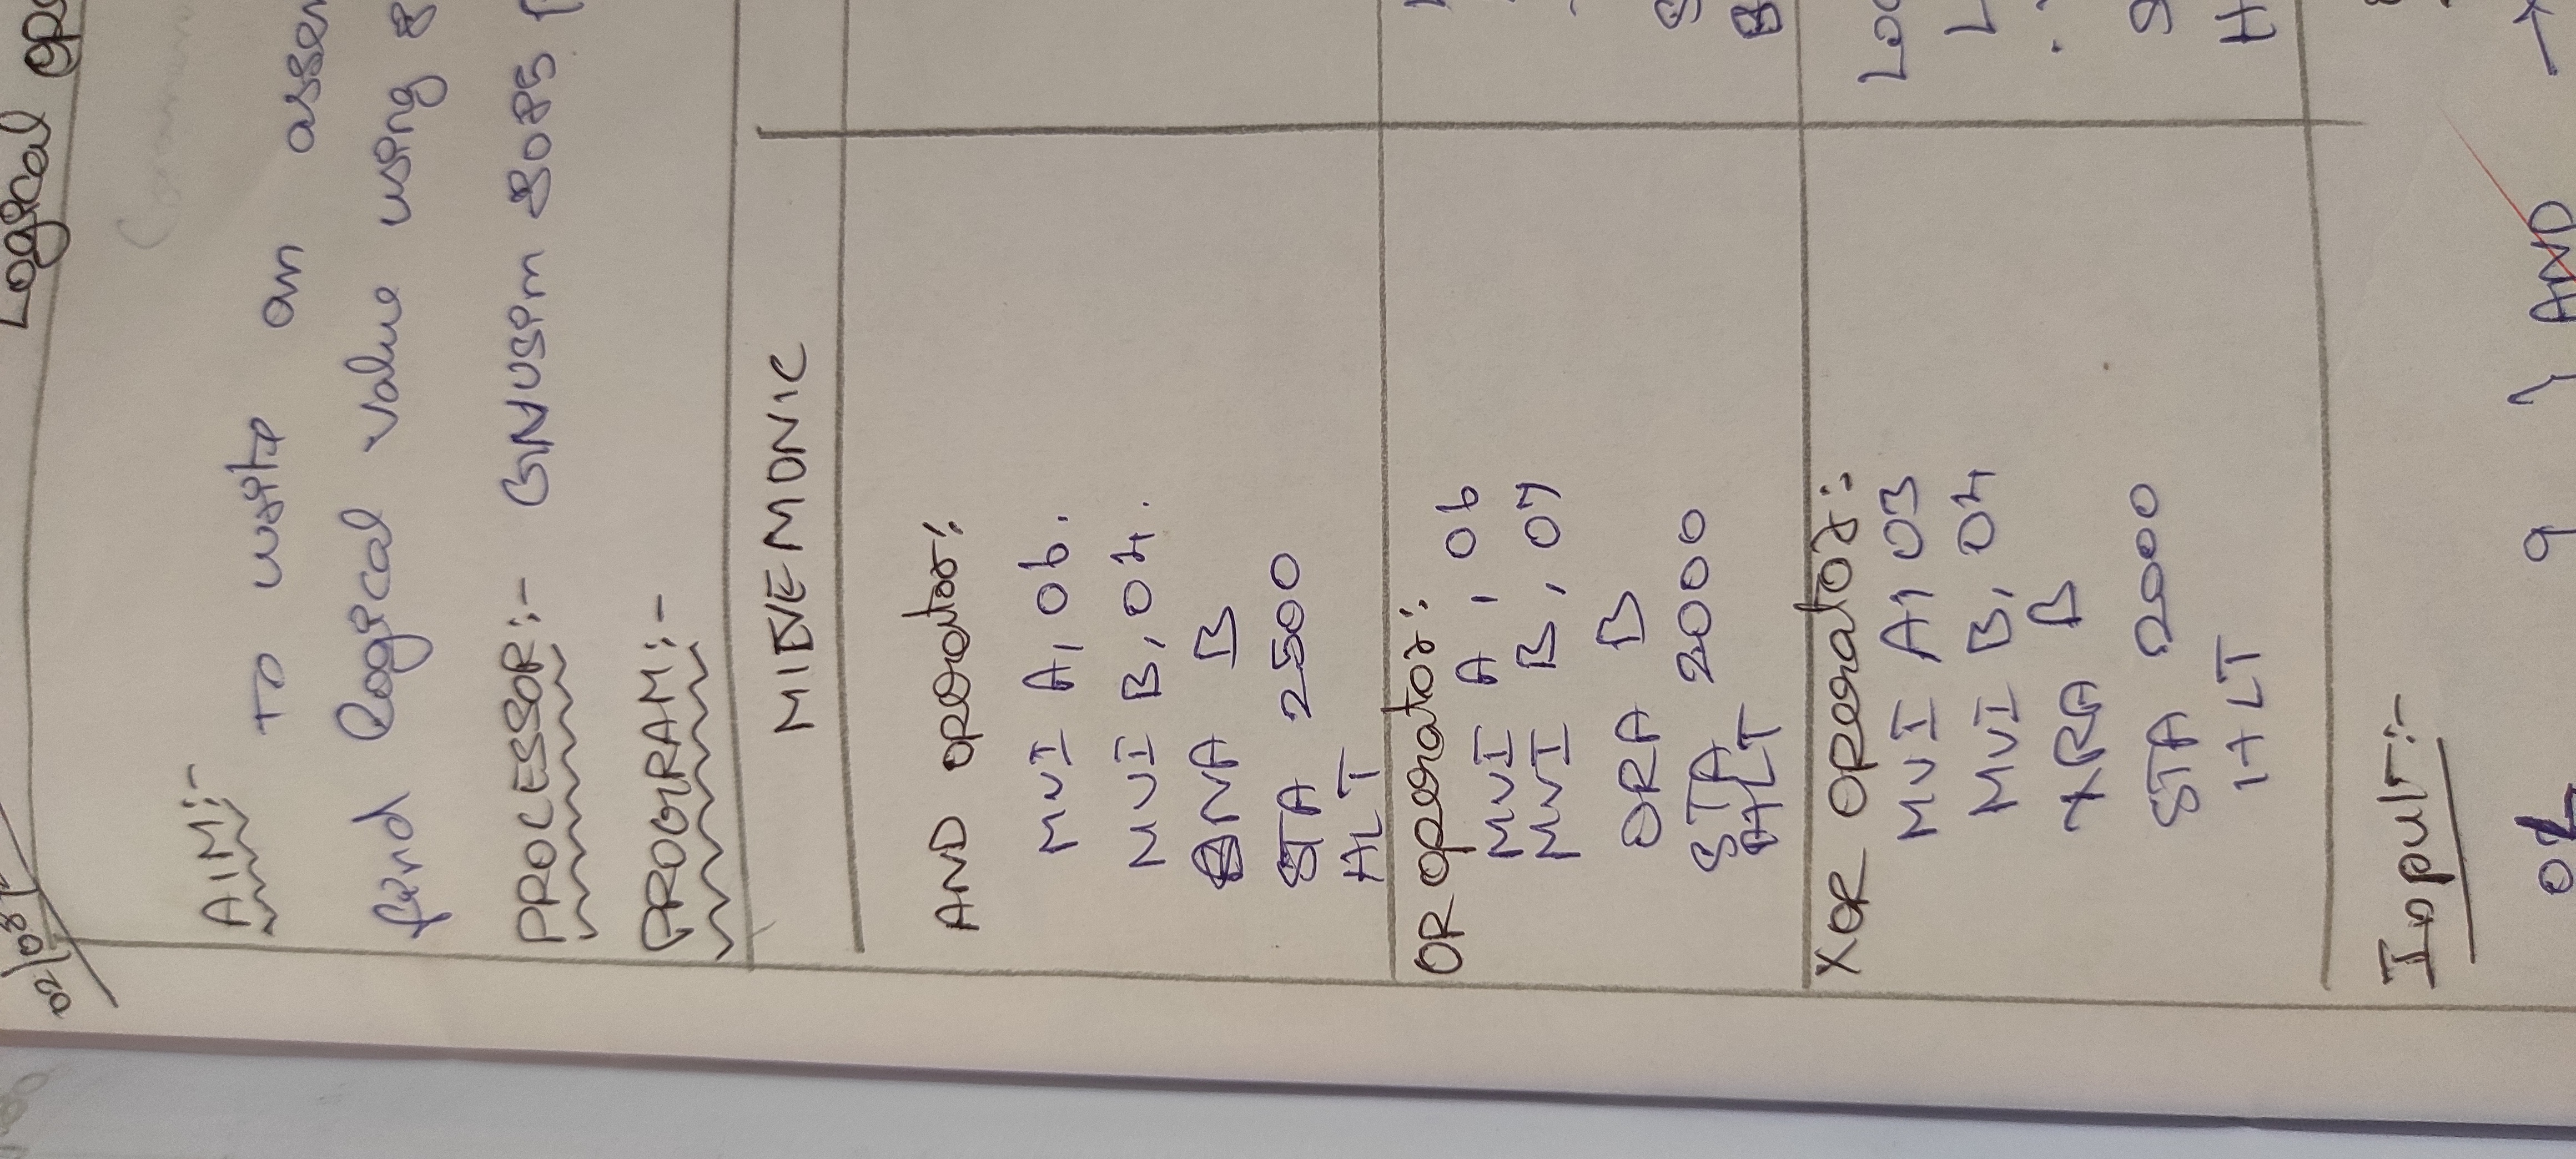 02/08/
Logical
AIM:-
To write an
find logical value using 8
PROCESSOR:- GNUSim 8085
PROGRAM:-
MNEMONIC
AND operator:
MVI A, 06.
MVI B, 04.
ANA B
STA 2500
HLT
OR operator:
MVI A, 06
MVI B, 07
ORA B
STA 2000
HLT
XOR operator:
MVI A, 03
MVI B, 04
XRA B
STA 2000
HLT
Input:-
9 } AND →